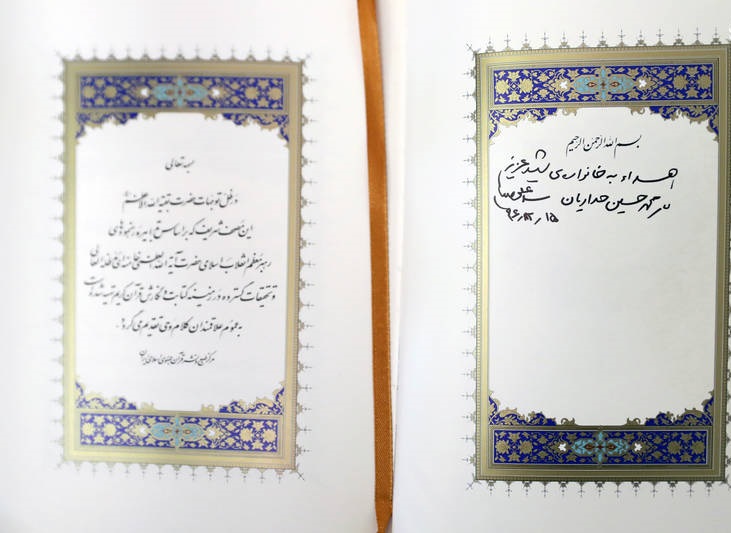 بسمه تعالی
در ظل توجهات حضرت بقیة الله الاعظم
این مصحف شریف که بر اساس تدابیر و رهنمودهای
رهبر معظم انقلاب اسلامی حضرت آیة الله العظمی خامنه‌ای مدظله العالی
و تحقیقات گسترده در زمینه کتابت و نگارش قرآن کریم تهیه شده است
به عموم علاقمندان کلام وحی تقدیم می‌گردد.
مرکز طبع و نشر قرآن جمهوری اسلامی ایران
بسم الله الرحمن الرحیم
اهداء به خانواده‌ی شهید عزیز
محمد حسین حدادیان
۹۶/۱۲/۱۵